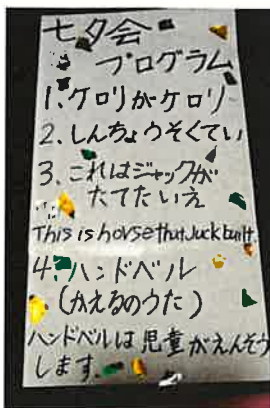 七夕会
プログラム
1、ケロリがケロリ
2、しんちょうそくてい
3、これはジャックが
たてたいえ
This is horse that Juck built.
4、ハンドベル
(かえるのうた)
ハンドベルは児童がえんそう
します。